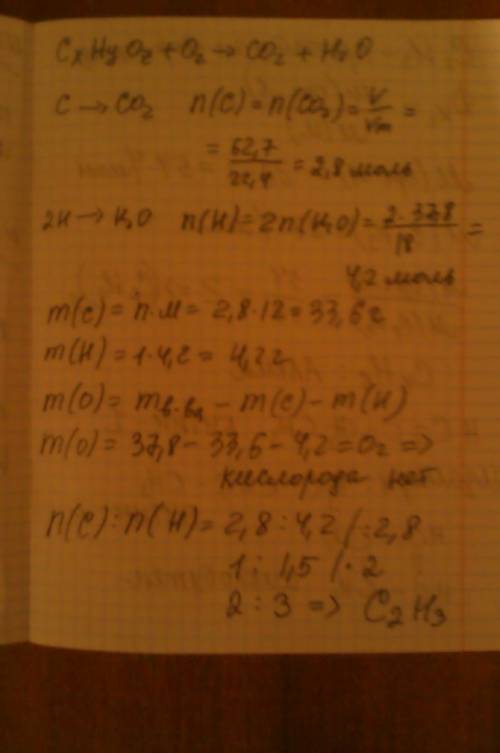 CxHyOz + O2 → CO2 + H2O
C → CO2 n(C) = n(CO2) = V/Vm =
= 62,7/22,4 = 2,8 моль
2H → H2O n(H) = 2n(H2O) = 2·37,8/18 =
4,2 моль
m(C) = n·M = 2,8·12 = 33,6 г
m(H) = 1·4,2 = 4,2 г
m(O) = mв-ва - m(C) - m(H)
m(O) = 37,8 - 33,6 - 4,2 = 0г =>
кислорода нет
n(C) : n(H) = 2,8 : 4,2 / :2,8
1 : 1,5 / ·2
2 : 3 => C2H3